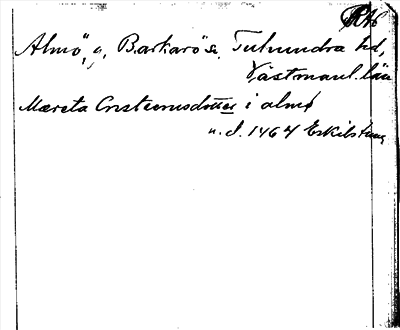 Almö, g, Barkarö sn, Tuhundra hd,
Västmanl. län
Mæreta Cristiernsdotter i almø
u. d. 1464 Eskilstuna